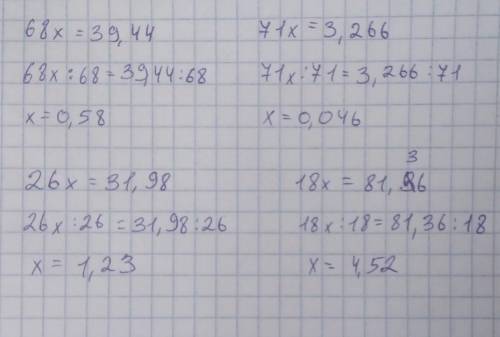 68x = 39,44
68x : 68 = 39,44 : 68
x = 0,58
71x = 3,266
71x : 71 = 3,266 : 71
x = 0,046
26x = 31,98
26x : 26 = 31,98 : 26
x = 1,23
18x = 81,36
18x : 18 = 81,36 : 18
x = 4,52